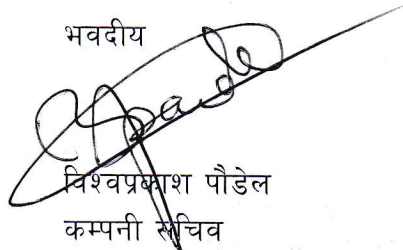 भवदीय
विश्वप्रकाश पौडेल
कम्पनी सचिव